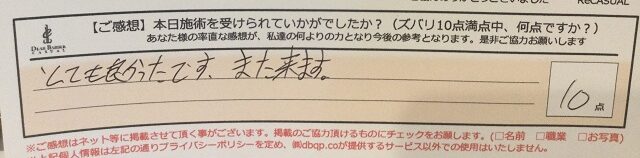 ReCASUAL
DEAR BARBER
CASUAL
【ご感想】本日施術を受けられていかがでしたか？（ズバリ10点満点中、何点ですか？）
あなた様の率直な感想が、私達の何よりの力となり今後の参考となります。是非ご協力お願いします
とても良かったです、また来ます。
10点
※ご感想はネット等に掲載させて頂く事がございます。掲載のご協力頂けるものにチェックをお願します。（□名前 □職業 □お写真）
※上記個人情報は左記の通りプライバシーポリシーを定め、㈱dbqp.coが提供するサービス以外での使用はいたしません。